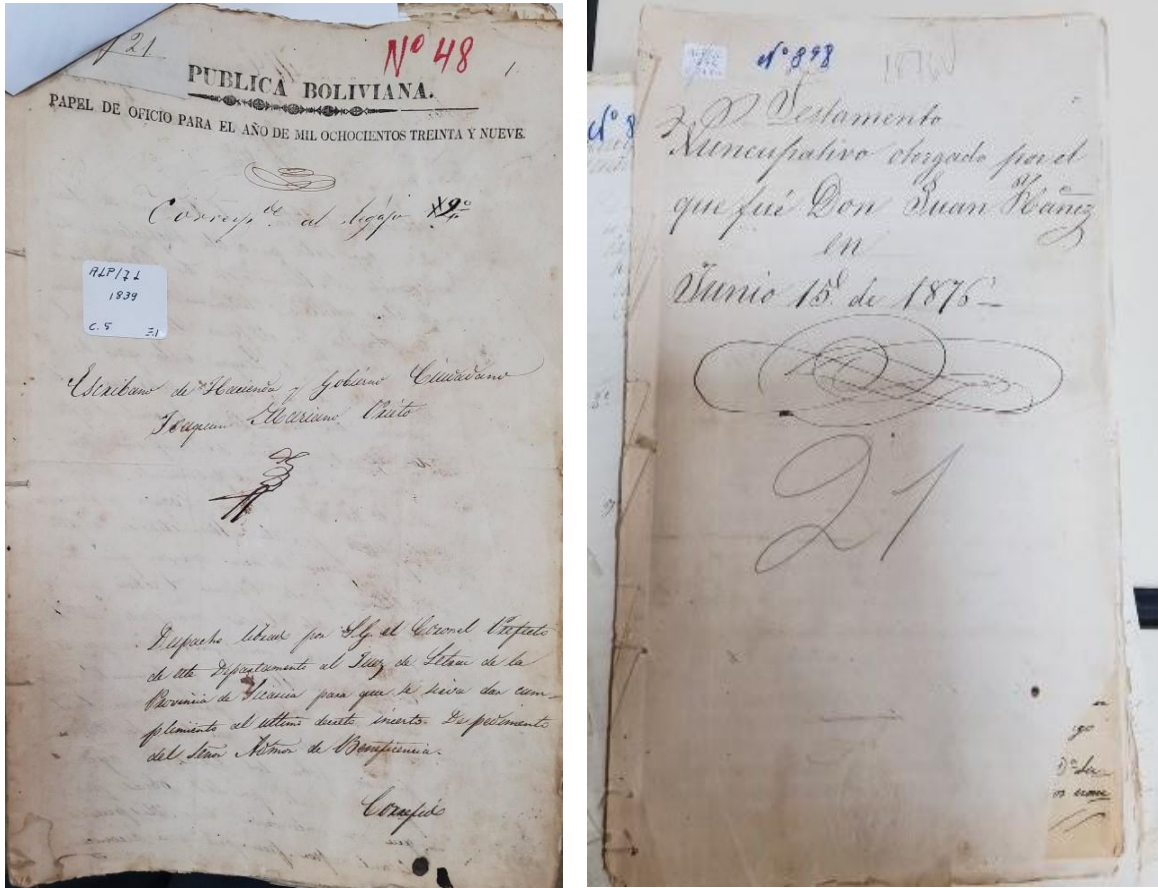 f 21
Nº 48
1.
PUBLICA BOLIVIANA.
PAPEL DE OFICIO PARA EL AÑO DE MIL OCHOCIENTOS TREINTA Y NUEVE.
Corresp.te al legajo
ALP/JL
1839
C. 5 E.1
Escribano de Hacienda y Gobierno Ciudadano
Joaquin Mariano Prieto
Despacho librado por S.G. el Coronel Prefecto
de este Departamento al Juez de Letras de la
Provincia de Sicasica para que se sirva dar cum-
plimiento al ultimo decreto inserto De pedimento
del Señor Admor de Beneficencia.
Corregido
Nº 898
1876
Nº 8
Testamento
Nuncupativo otorgado por el
que fué Don Juan Ybañez
en
Junio 15 de 1876
21